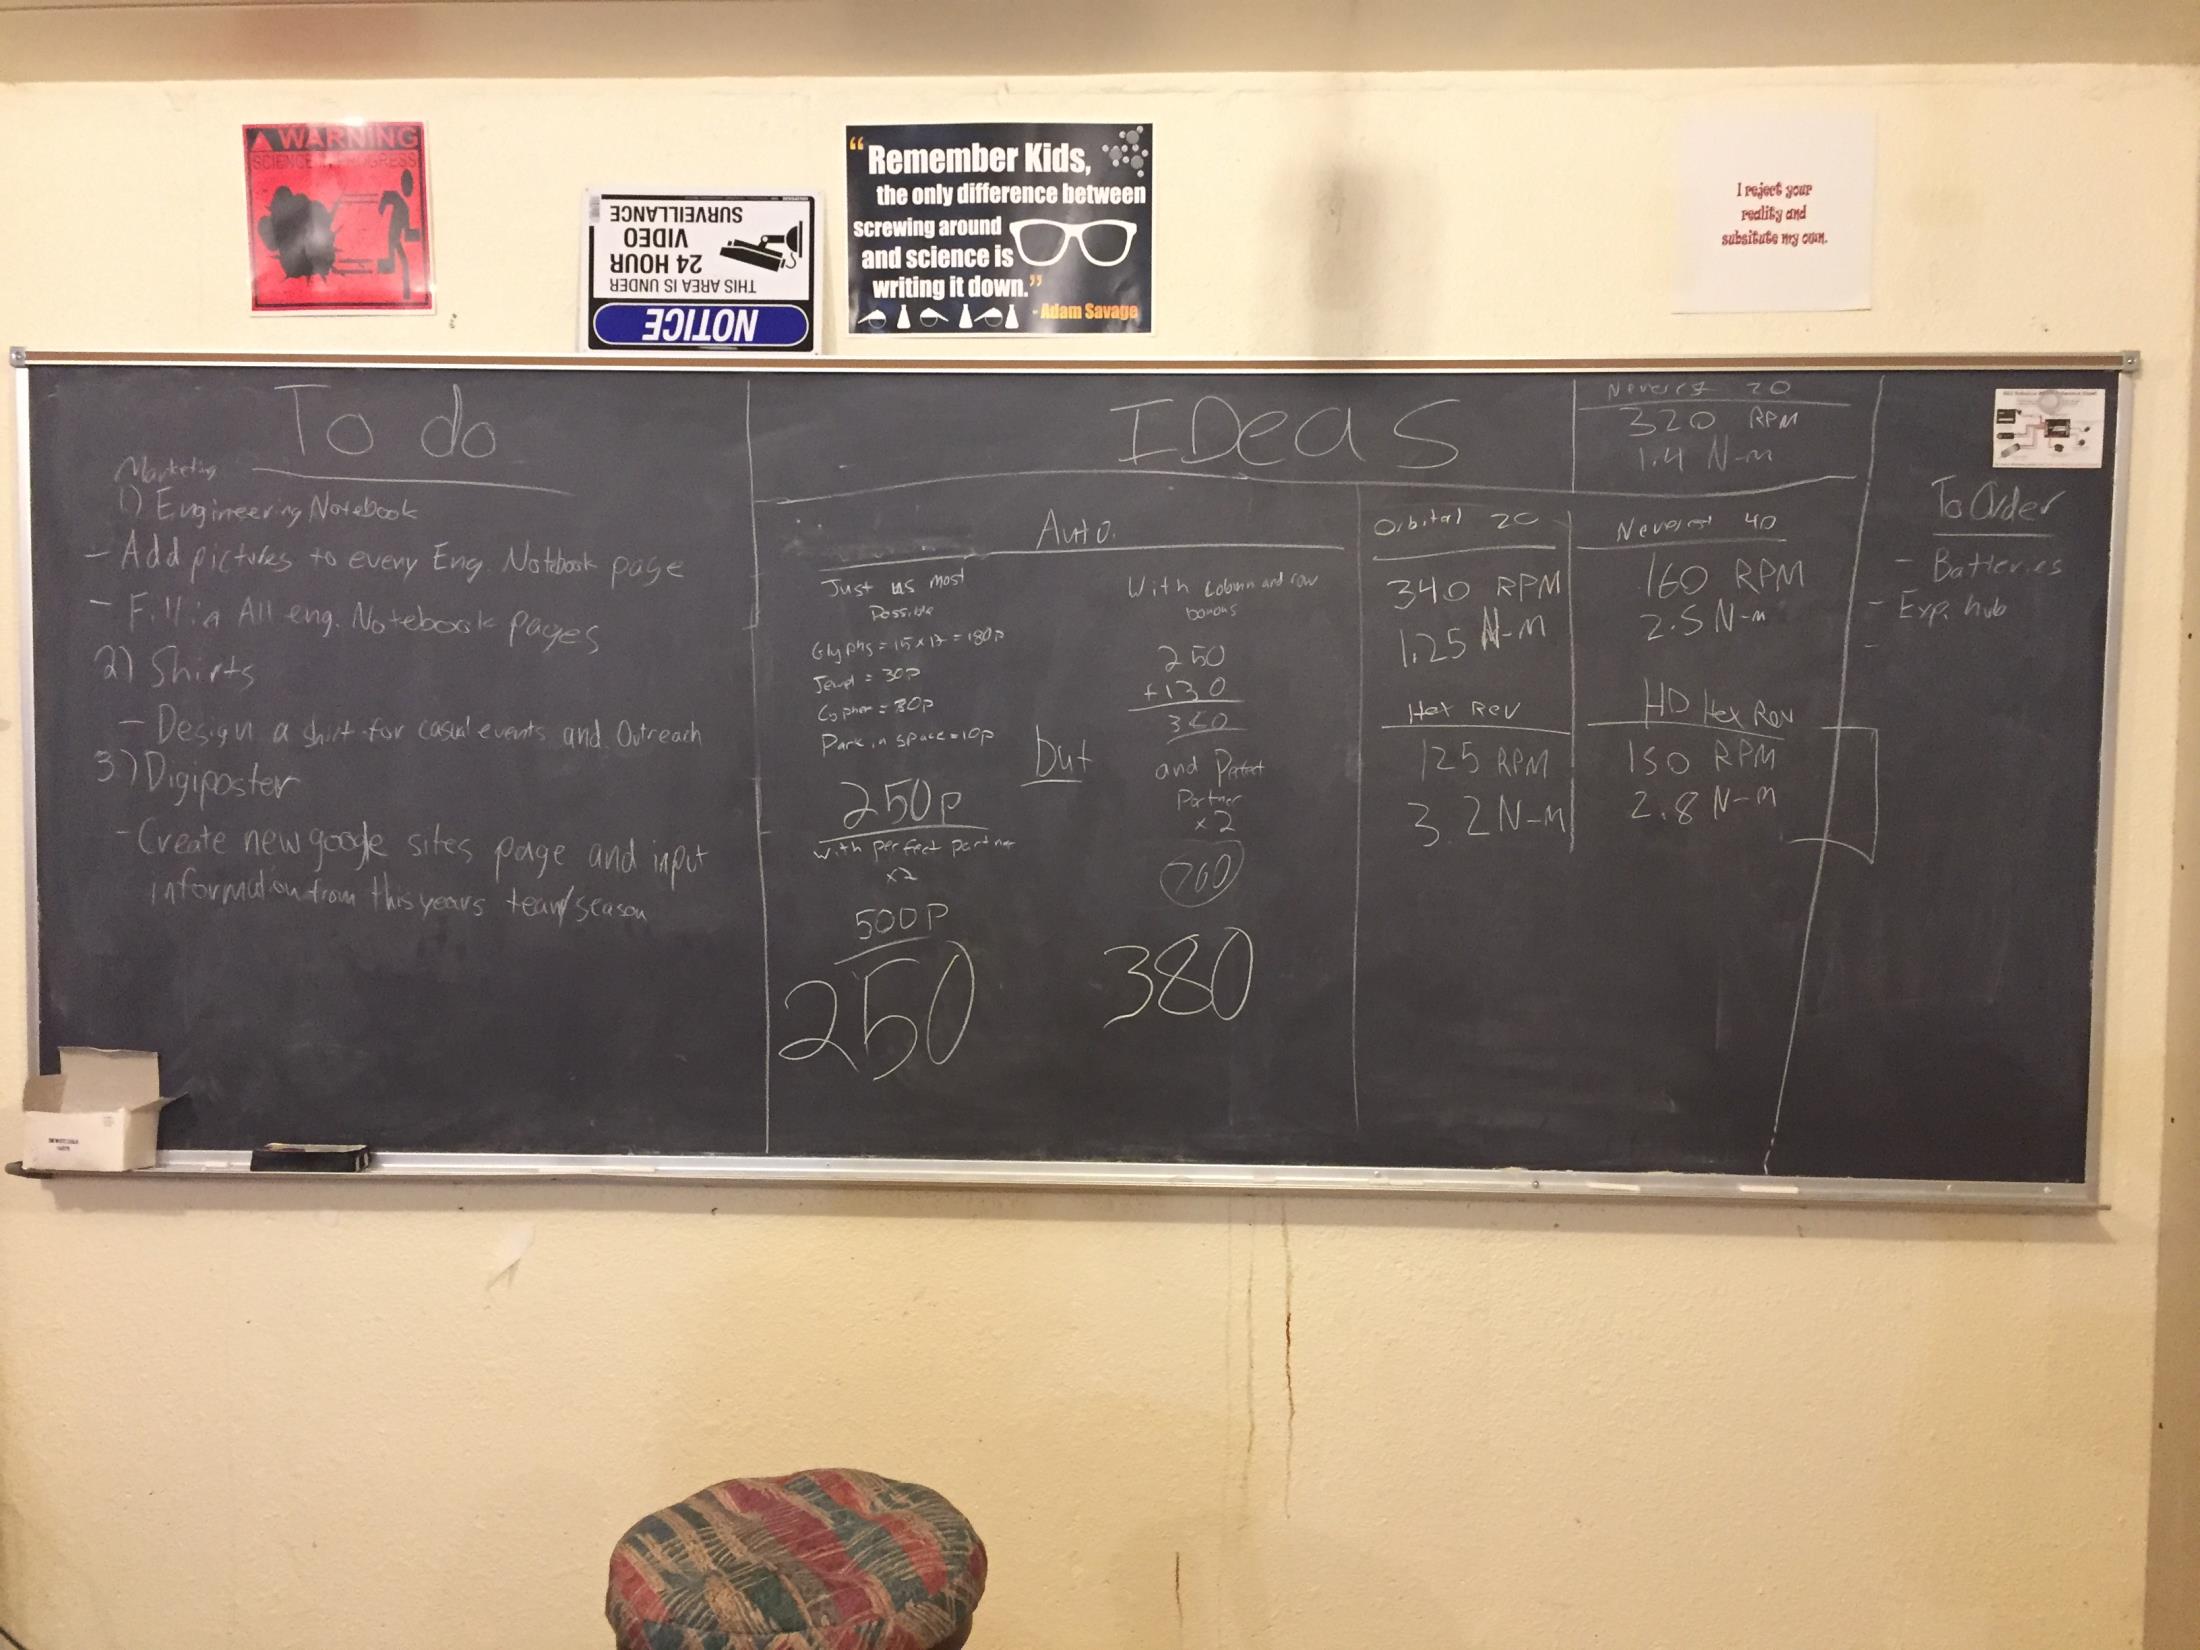 WARNING
SCIENCE IN PROGRESS
NOTICE
THIS AREA IS UNDER
24 HOUR
VIDEO
SURVEILLANCE
“Remember Kids,
the only difference between
screwing around
and science is
writing it down.”
- Adam Savage
I reject your
reality and
subsitute my own.
To do
Marketing
1) Engineering Notebook
- Add pictures to every Eng. Notebook page
- Fill in All eng. Notebook pages
2) Shirts
- Design a shirt for casual events and Outreach
3) Digiposter
- Create new google sites page and input
information from this years team/season
IDeas
Auto.
Just us most
Possible
Glyphs = 15 x 12 = 180p
Jewel = 30p
Cypher = 30p
Park in space = 10p
250p
with perfect partner
x2
500P
250
but
With column and row
bonus
250
+130
380
and
Partner
x2
760
380
Neverest 20
320 RPM
1.4 N-m
Orbital 20
340 RPM
1.25 N-m
Neverest 40
160 RPM
2.5 N-m
Hex Rev
125 RPM
3.2 N-m
HD Hex Rev
150 RPM
2.8 N-m
To Order
- Batteries
- Exp. hub
-